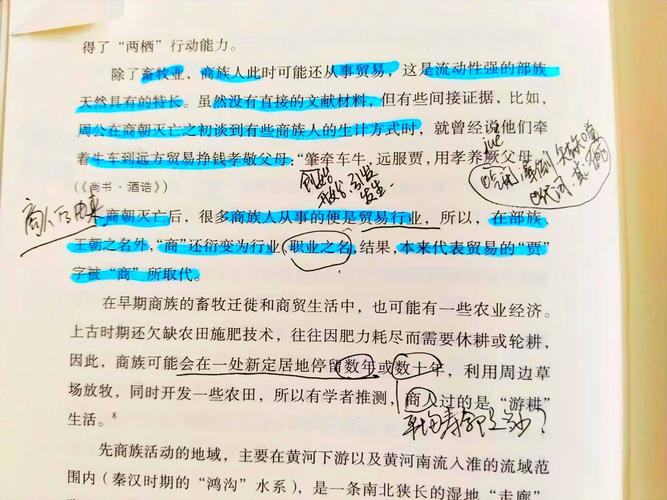 得了“两栖”行动能力。
除了畜牧业，商族人此时可能还从事贸易，这是流动性强的部族
天然具有的特长。虽然没有直接的文献材料，但有些间接证据，比如，
周公在商朝灭亡之初谈到有些商族人的生计方式时，就曾经说他们牵
着牛车到远方贸易挣钱孝敬父母：“肇牵车牛，远服贾，用孝养厥父母。”
jué
（《尚书·酒诰》）
开始、引发
发生
代词：其
商人的由来
商朝灭亡后，很多商族人从事的便是贸易行业，所以，在部族、
王朝之名外，“商”还衍变为行业、职业之名，结果，本来代表贸易的“贾”
字被“商”所取代。
在早期商族的畜牧迁徙和商贸生活中，也可能有一些农业经济。
上古时期还欠缺农田施肥技术，往往因肥力耗尽而需要休耕或轮耕，
因此，商族可能会在一处新定居地停留数年或数十年，利用周边草
场放牧，同时开发一些农田，所以有学者推测，商人过的是“游耕”
生活。8
平均寿命是多少？
先商族活动的地域，主要在黄河下游以及黄河南流入淮的流域范
围内（秦汉时期的“鸿沟”水系），是一条南北狭长的湿地“走廊”